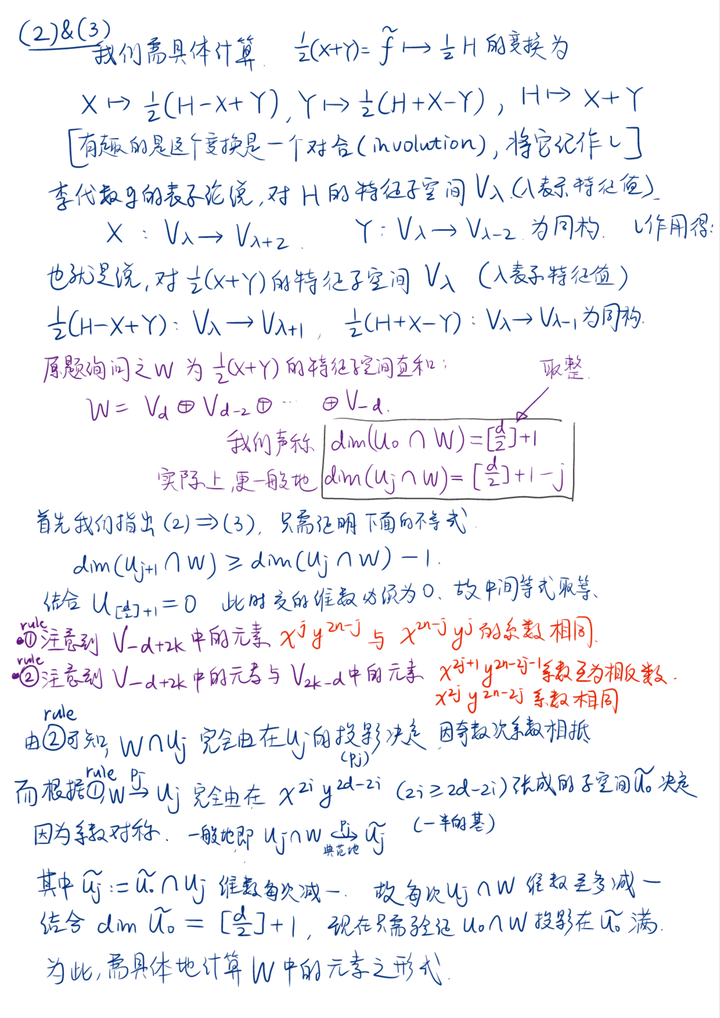 (2)&(3)
我们需具体计算. ½(X+Y)= f̃ ↦ ½H 的变换为
X ↦ ½(H-X+Y), Y ↦ ½(H+X-Y), H ↦ X+Y
[有趣的是这个变换是一个对合(involution), 将它记作 ι]
李代数g的表示论说, 对 H 的特征子空间 V_λ (λ表示特征值)
X : V_λ → V_{λ+2}. Y : V_λ → V_{λ-2} 为同构. ι作用得:
也就是说, 对 ½(X+Y) 的特征子空间 V_λ (λ表示特征值)
½(H-X+Y): V_λ → V_{λ+1}, ½(H+X-Y): V_λ → V_{λ-1} 为同构.
原题询问之 W 为 ½(X+Y) 的特征子空间直和: 取整
W = V_d ⊕ V_{d-2} ⊕ ⋯ ⊕ V_{-d}.
我们声称 dim(U_0 ∩ W) = [d/2]+1
实际上更一般地 dim(U_j ∩ W) = [d/2]+1-j
首先我们指出 (2)⇒(3), 只需证明下面的不等式.
dim(U_{j+1} ∩ W) ≥ dim(U_j ∩ W) - 1.
结合 U_{[d/2]+1} = 0 此时交的维数必须为0. 故中间等式取等.
rule ① 注意到 V_{-d+2k} 中的元素 x^j y^{2n-j} 与 x^{2n-j} y^j 的系数相同.
rule ② 注意到 V_{-d+2k} 中的元素与 V_{2k-d} 中的元素 x^{2j+1} y^{2n-2j-1} 系数互为相反数.
x^{2j} y^{2n-2j} 系数相同
由 rule ② 可知, W∩U_j 完全由在 U_j 的投影决定 (P_j) 因奇数次系数相抵
而根据 rule ①, W →^{P_j} U_j 完全由在 x^{2i} y^{2d-2i} (2i ≥ 2d-2i) 张成的子空间 Ũ_0 决定
因为系数对称. 一般地即 U_j∩W →^{P_j}_{典范地} Ũ_j (一半的基)
其中 Ũ_j := Ũ_0 ∩ U_j 维数每次减一. 故每次 U_j ∩ W 维数至多减一
结合 dim Ũ_0 = [d/2]+1, 现在只需验证 U_0∩W 投影在 Ũ_0 满.
为此, 需具体地计算 W 中的元素之形式.